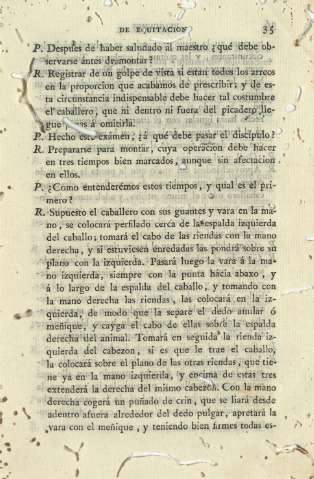 DE EQUITACION 35
P. Despues de haber saludado al maestro ¿qué debe ob-
servarse ántes de montar?
R. Registrar de un golpe de vista si estan todos los arreos
en la proporcion que acabanos de prescribir; y de es-
ta circunstancia indispensable debe hacer tal costumbre
el caballero, que ni dentro ni fuera del picadero lle-
gue á omitirla.
P. Hecho este exámen, ¿á qué debe pasar el discípulo?
R. Prepararse para montar, cuya operacion debe hacer
en tres tiempos bien marcados, aunque sin afectacion
en ellos.
P. ¿Como entenderémos estos tiempos, y qual es el pri-
mero?
R. Supuesto el caballero con sus guantes y vara en la ma-
no, se colocará perfilado cerca de la espalda izquierda
del caballo; tomará el cabo de las riendas con la mano
derecha, y si estuviesen enredadas las pondrá sobre su
plano con la izquierda. Pasará luego la vara á la ma-
no izquierda, siempre con la punta hácia abaxo, y
á lo largo de la espalda del caballo, y tomando con
la mano derecha las riendas, las colocará en la iz-
quierda, de modo que la separe el dedo anular ó
meñique, y cayga el cabo de ellas sobre la espalda
derecha del animal. Tomará en seguida la rienda iz-
quierda del cabezon, si es que le trae el caballo,
la colocará sobre el plano de las otras riendas, que tie-
ne ya en la mano izquierda, y encima de estas tres
extenderá la derecha del mismo cabezon. Con la mano
derecha cogerá un puñado de crin, que se liará desde
adentro afuera alrededor del dedo pulgar, apretará la
vara con el meñique, y teniendo bien firmes todas es-